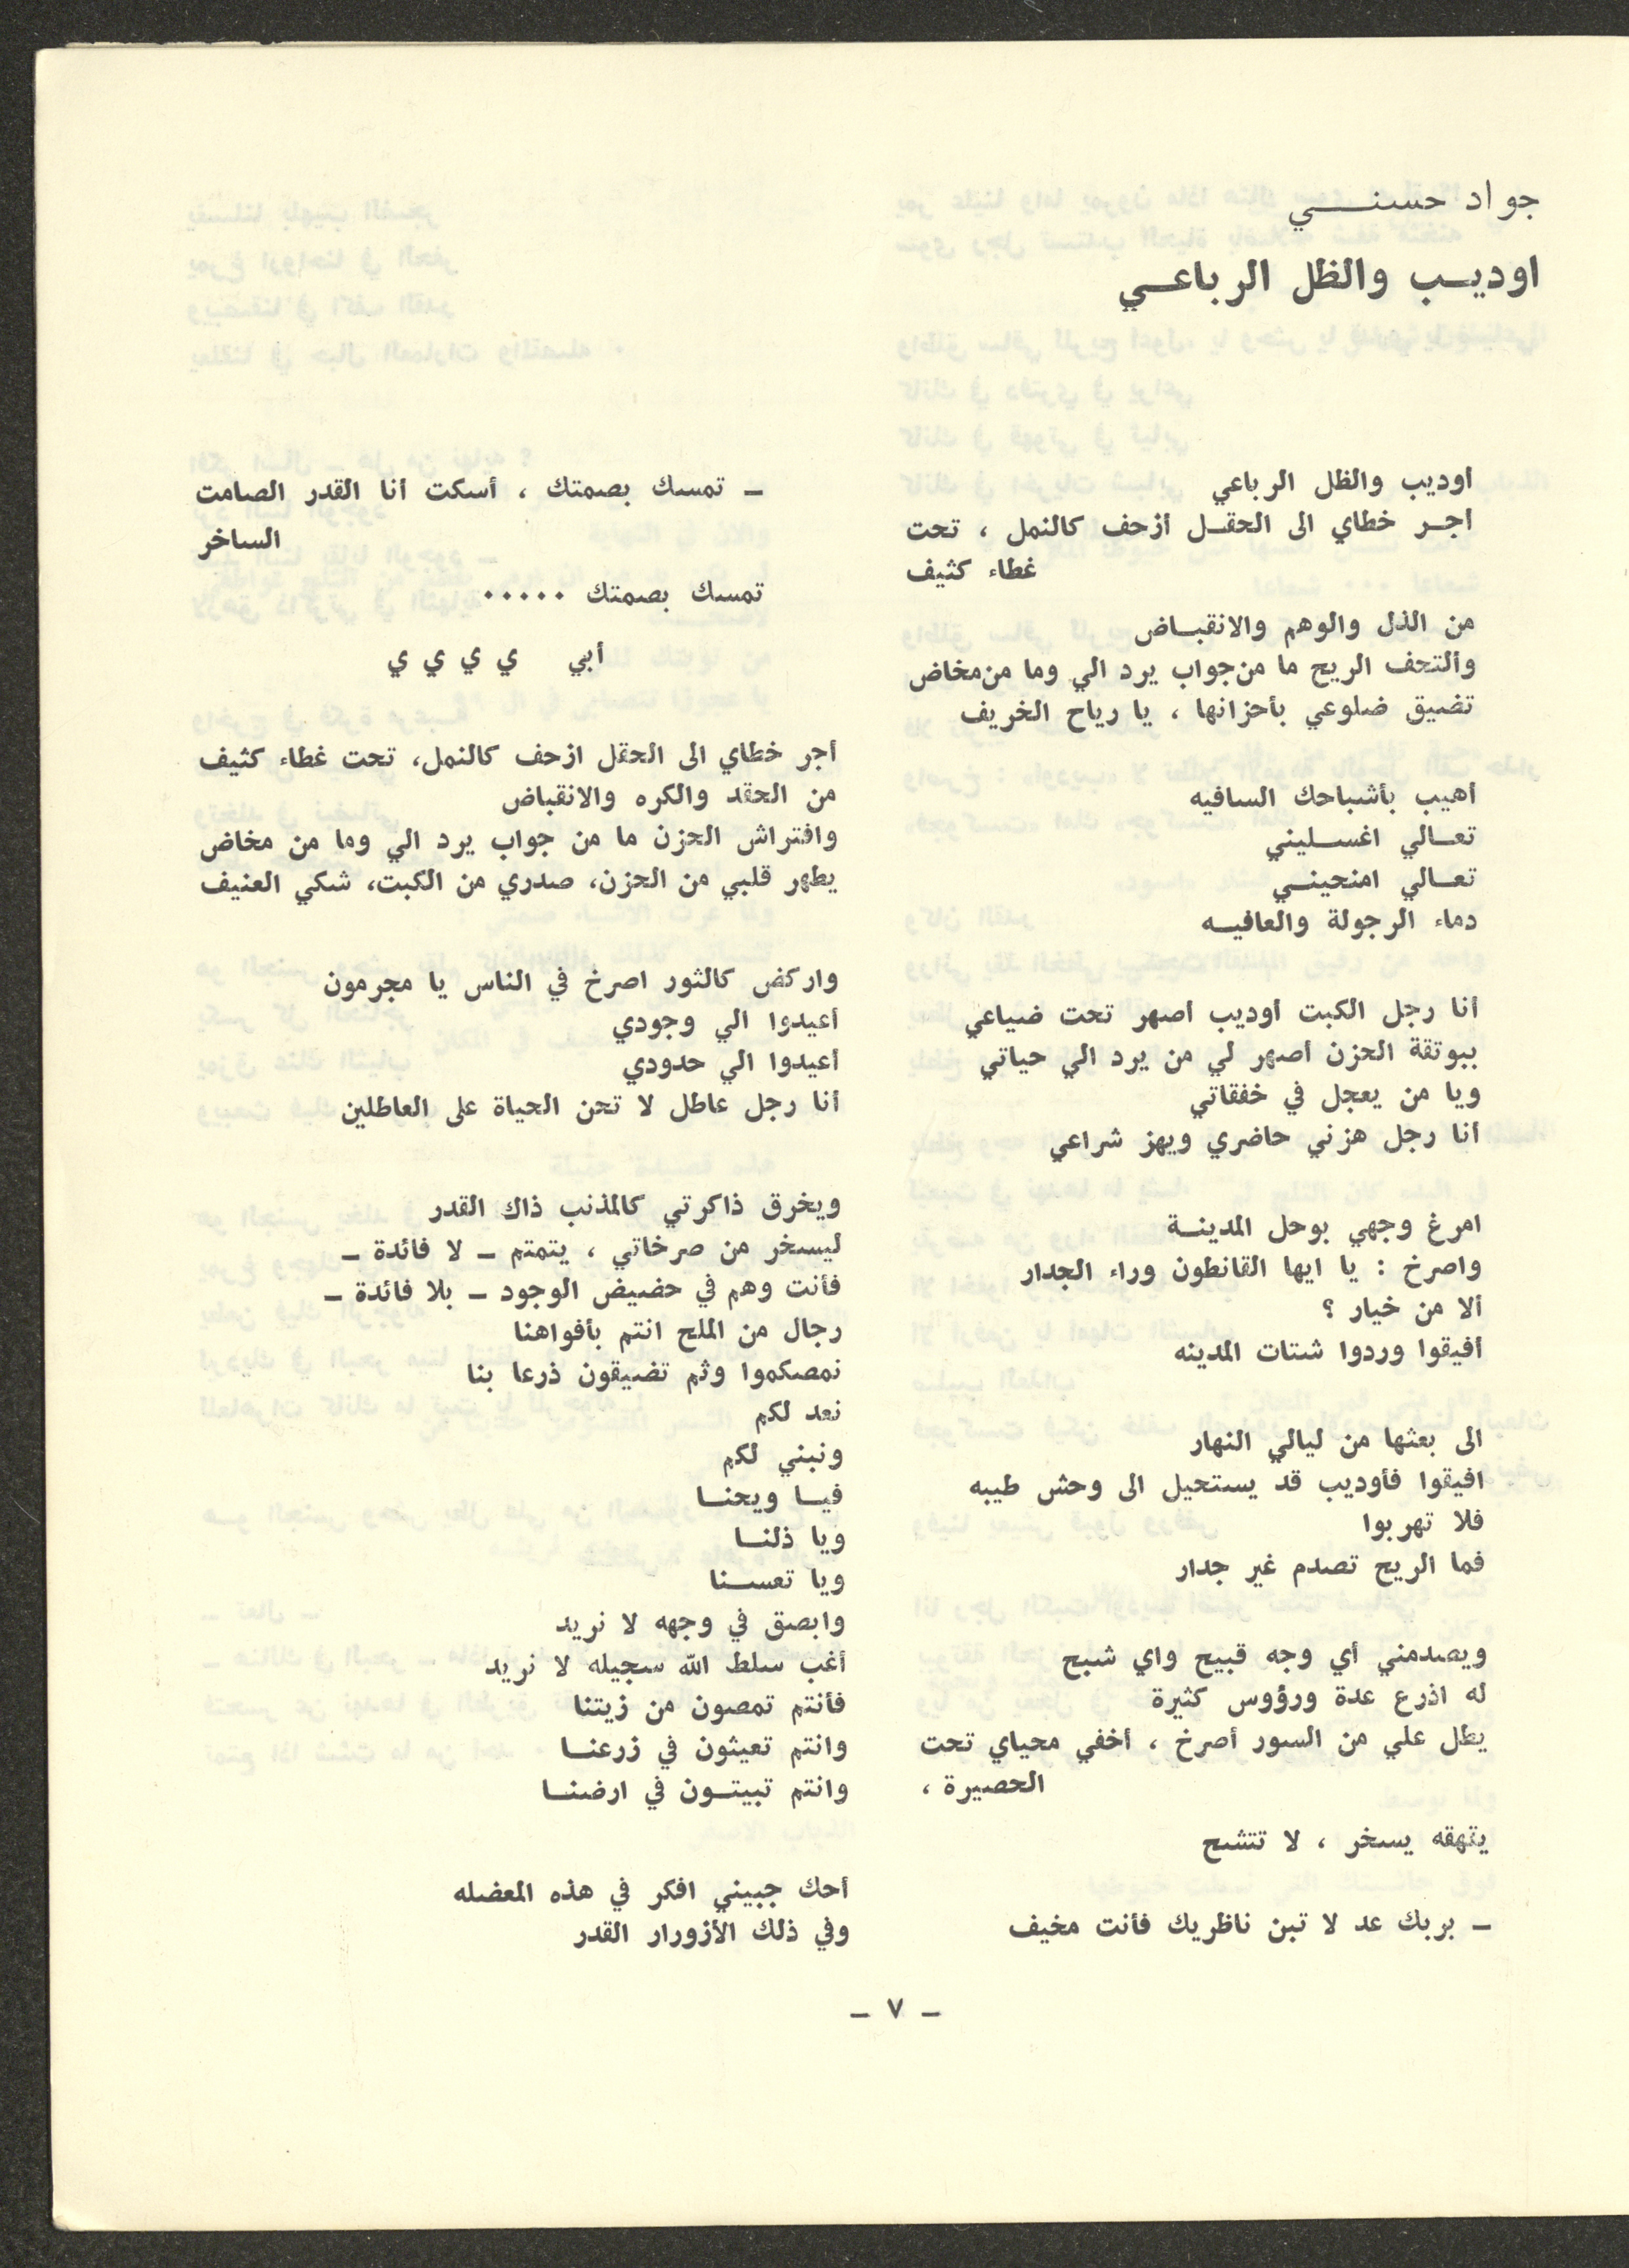 جواد حسنـــــي
اوديــب والظل الرباعــي
أوديب والظل الرباعي
أجــر خطاي الى الحقــل أزحف كالنمل ، تحت
غطاء كثيف
من الذل والوهم والانقبــاض
وألتحف الريح ما من جواب يرد الي وما من مخاض
تضيق ضلوعي بأحزانها ، يا رياح الخريف
أهيب بأشباحك السافيه
تعــالي اغســليني
تعــالي امنحينــي
دماء الرجولة والعافيــه
أنا رجل الكبت أوديب أصهر تحت ضياعي
ببوتقة الحزن أصهر لي من يرد الي حياتي
ويا من يعجل في خفقاتي
أنا رجل هزني حاضري ويهز شراعي
امرغ وجهي بوحل المدينــة
واصرخ : يا ايها القانطون وراء الجدار
ألا من خيار ؟
أفيقوا وردوا شتات المدينه
الى بعثها من ليالي النهار
افيقوا فأوديب قد يستحيل الى وحش طيبه
فلا تهربوا
فما الريح تصدم غير جدار
ويصدمني أي وجه قبيح واي شبح
له اذرع عدة ورؤوس كثيرة
يطل علي من السور أصرخ ، أخفي محياي تحت
الحصيرة ،
يقهقه يسخر ، لا تتشح
ـ بربك عد لا تبن ناظريك فأنت مخيف
ـ تمسك بصمتك ، أسكت أنا القدر الصامت
الساخر
تمسك بصمتك .....
أبي ي ي ي ي
أجر خطاي الى الحقل ازحف كالنمل، تحت غطاء كثيف
من الحقد والكره والانقباض
وافتراش الحزن ما من جواب يرد الي وما من مخاض
يطهر قلبي من الحزن، صدري من الكبت، شكي العنيف
واركض كالثور اصرخ في الناس يا مجرمون
أعيدوا الي وجودي
أعيدوا الي حدودي
أنا رجل عاطل لا تحن الحياة على العاطلين
ويخرق ذاكرتي كالمذنب ذاك القدر
ليسخر من صرخاتي ، يتمتم ـ لا فائدة ـ
فأنت وهم في حضيض الوجود ـ بلا فائدة ـ
رجال من الملح انتم بأفواهنا
نمصكموا وثم تضيقون ذرعا بنا
نعد لكم
ونبني لكم
فيــا ويحنــا
ويا ذلنــا
ويا تعســنا
وابصق في وجهه لا نريد
أغب سلط الله سجيله لا نريد
فأنتم تمصون من زيتنا
وانتم تعيثون في زرعنــا
وانتم تبيتــون في ارضنــا
أحك جبيني افكر في هذه المعضله
وفي ذلك الأزورار القدر
ـ ٧ ـ